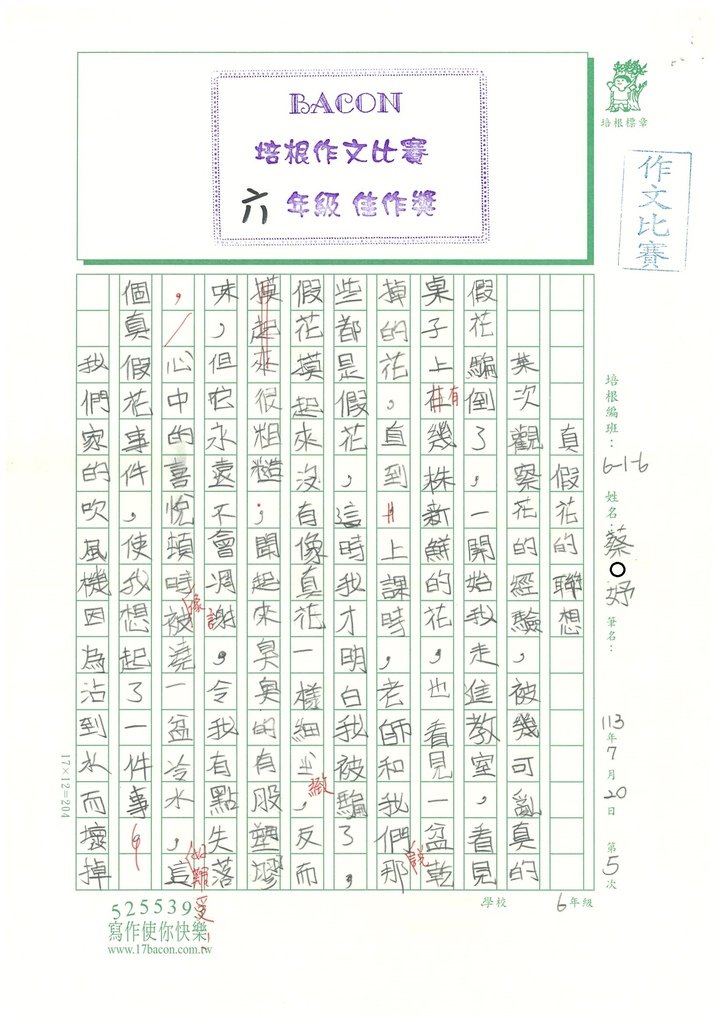 BACON
培根作文比賽
六年級 佳作獎
培根標章
作文比賽
培根編班：6-1-6 姓名：蔡○妤 筆名：
113年7月20日 第5次
真假花的聯想
某次觀察花的經驗，被幾可亂真的
假花騙倒了，一開始我走進教室，看見
桌子上有幾株新鮮的花，也看見一盆乾
掉的花。直到上課時，老師和我們說那
些都是假花，這時我才明白我被騙了，
假花摸起來沒有像真花一樣細緻，反而
摸起來很粗糙；聞起來臭臭的有股塑膠
味，但它永遠不會凋謝。令我有點失落
，心中的喜悅頓時像被澆一盆冷水，這
個真假花事件，使我想起了一件事
我們家的吹風機因為沾到水而壞掉
好難受！
17×12=204
學校 6年級
525539
寫作使你快樂
www.17bacon.com.tw